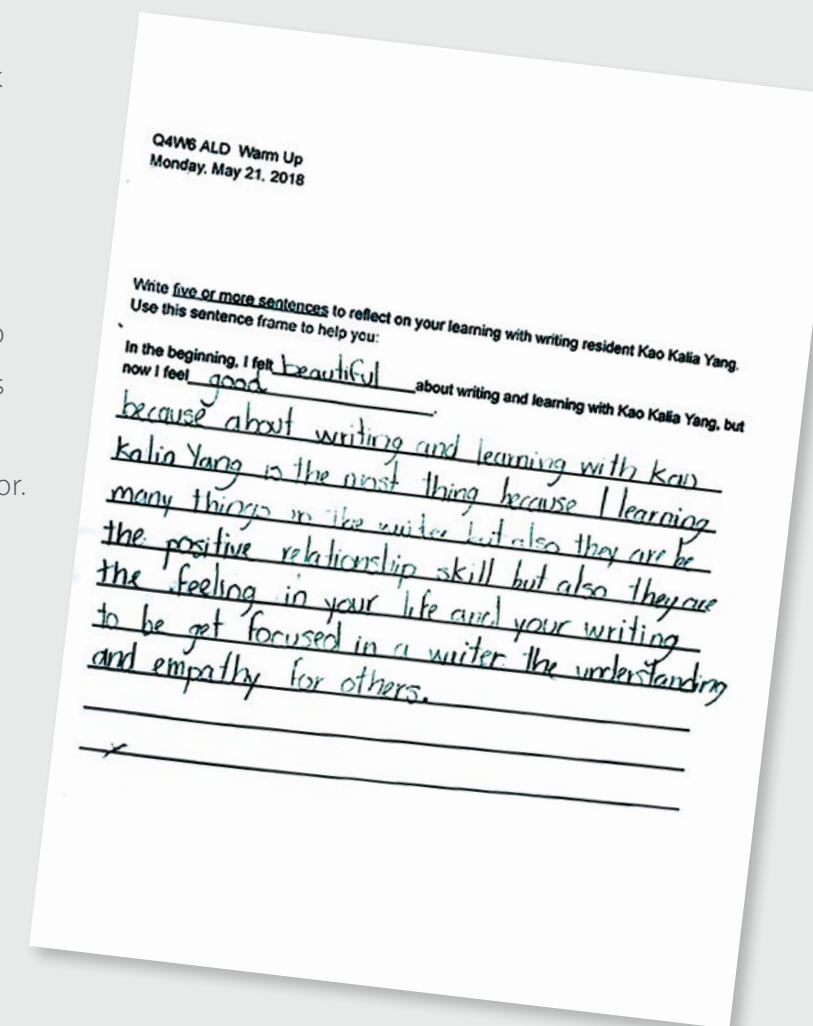 Q4W6 ALD Warm Up
Monday, May 21, 2018
Write five or more sentences to reflect on your learning with writing resident Kao Kalia Yang.
Use this sentence frame to help you:
In the beginning, I felt beautiful about writing and learning with Kao Kalia Yang, but
now I feel good.
because about writing and learning with Kao
Kalia Yang is the most thing because I learning
many things in the writer but also they are be
the positive relationship skill but also they are
the feeling in your life and your writing
to be get focused in a writer the understanding
and empathy for others.
or.